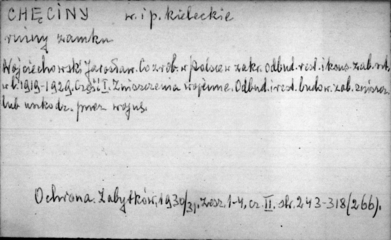 CHĘCINY w. i p. kieleckie
ruiny zamku
Wojciechowski Jarosław. Co zrob. w Polsce w zakr. odbud. rest. i kons. zab.
w l. 1919-1929. Część I. Zniszczenia wojenne. Odbud. i rest. budow. zab. zniszcz.
lub uszkodz. przez wojnę.
Ochrona Zabytków, 1930/31, zesz. 1-4, cz. II. str. 243-318 (266).